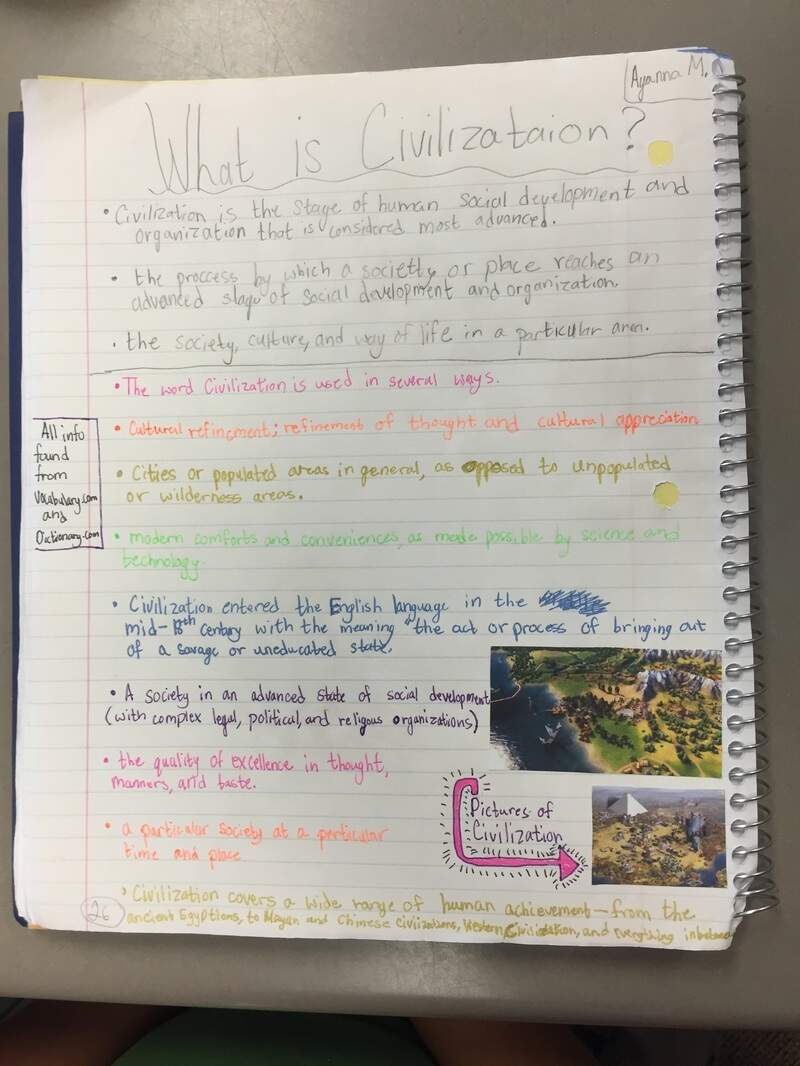 Ayanna M.
What is Civilizataion?
• Civilization is the stage of human social development and
organization that is considered most advanced.
• the proccess by which a societty or place reaches an
advanced stage of social development and organization.
• the society, culture, and way of life in a particular area.
• The word Civilization is used in several ways.
• Cultural refinement; refinement of thought and cultural appreciation
• Cities or populated areas in general, as opposed to unpopulated
or wilderness areas.
• modern comforts and conveniences, as made possible by science and
technology
All info
found
from
Vocabulary.com
and
Dictionary.com
• Civilization entered the English language in the
mid-18th century with the meaning "the act or process of bringing out
of a savage or uneducated state.
• A society in an advanced state of social development
(with complex legal, political, and religous organizations)
• the quality of excellence in thought,
manners, and taste.
Pictures of
Civilization
• a particular society at a perticular
time and place
• Civilization covers a wide range of human achievement—from the
ancient Egyptions, to Mayan and Chinese civilizations, Western Civilization, and everything inbetween
26